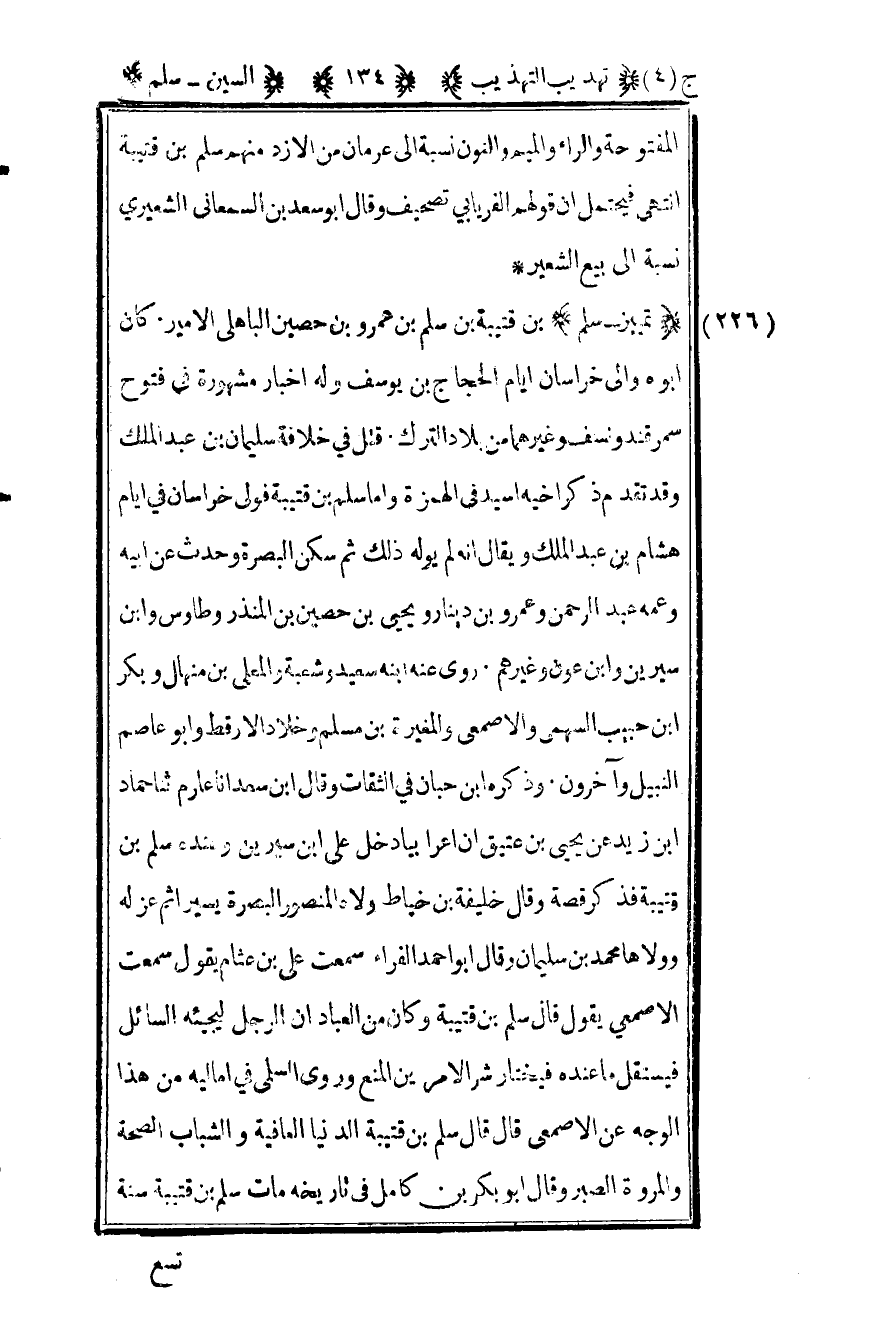 ج (٤) ﴿ تهذيب التهذيب ﴾ ﴿ ١٣٤ ﴾ ﴿ السين - سلم ﴾
المفتوحة والراء والميم والنون نسبة الى عرمان من الازد منهم سلم بن قتيبة
انتهى فيحتمل ان قولهم الفريابي تصحيف وقال ابو سعد بن السمعانى الشعيري
نسبة الى بيع الشعير *
(٢٢٦) ﴿ تمييز - سلم ﴾ بن قتيبة بن سلم بن عمرو بن حصين الباهلى الامير . كان
ابوه والى خراسان ايام الحجاج بن يوسف وله اخبار مشهورة في فتوح
سمرقند ونسف وغيرهما من بلاد الترك . قتل في خلافة سليمان بن عبد الملك
وقد تقدم ذكر اخيه اسيد فى الهمزة واما سلم بن قتيبة فولى خراسان في ايام
هشام بن عبد الملك ويقال انه لم يوله ذلك ثم سكن البصرة وحدث عن ابيه
وعمه عبد الرحمن وعمرو بن دينار ويحيى بن حصين بن المنذر وطاوس وابن
سيرين وابن عون وغيرهم . روى عنه ابنه سعيد وشعبة والمعلى بن منهال وبكر
ابن حبيب السهمى والاصمعى والمغيرة بن مسلم وخلاد الارقط وابو عاصم
النبيل وآخرون . وذكره ابن حبان في الثقات وقال ابن سعد انا عارم ثنا حماد
ابن زيد عن يحيى بن عتيق ان اعرابيا دخل على ابن سيرين وعنده سلم بن
قتيبة فذكر قصة وقال خليفة بن خياط ولاه المنصور البصرة يسيرا ثم عزله
وولاها محمد بن سليمان وقال ابو احمد الفراء سمعت على بن عثام يقول سمعت
الاصمعي يقول قال سلم بن قتيبة وكان من العباد ان الرجل ليجيئه السائل
فيستقل ما عنده فيختار شر الامرين المنع وروى السلمى في اماليه من هذا
الوجه عن الاصمعى قال قال سلم بن قتيبة الدنيا العافية والشباب الصحة
والمروة الصبر وقال ابو بكر بن كامل فى تاريخه مات سلم بن قتيبة سنة
تسع